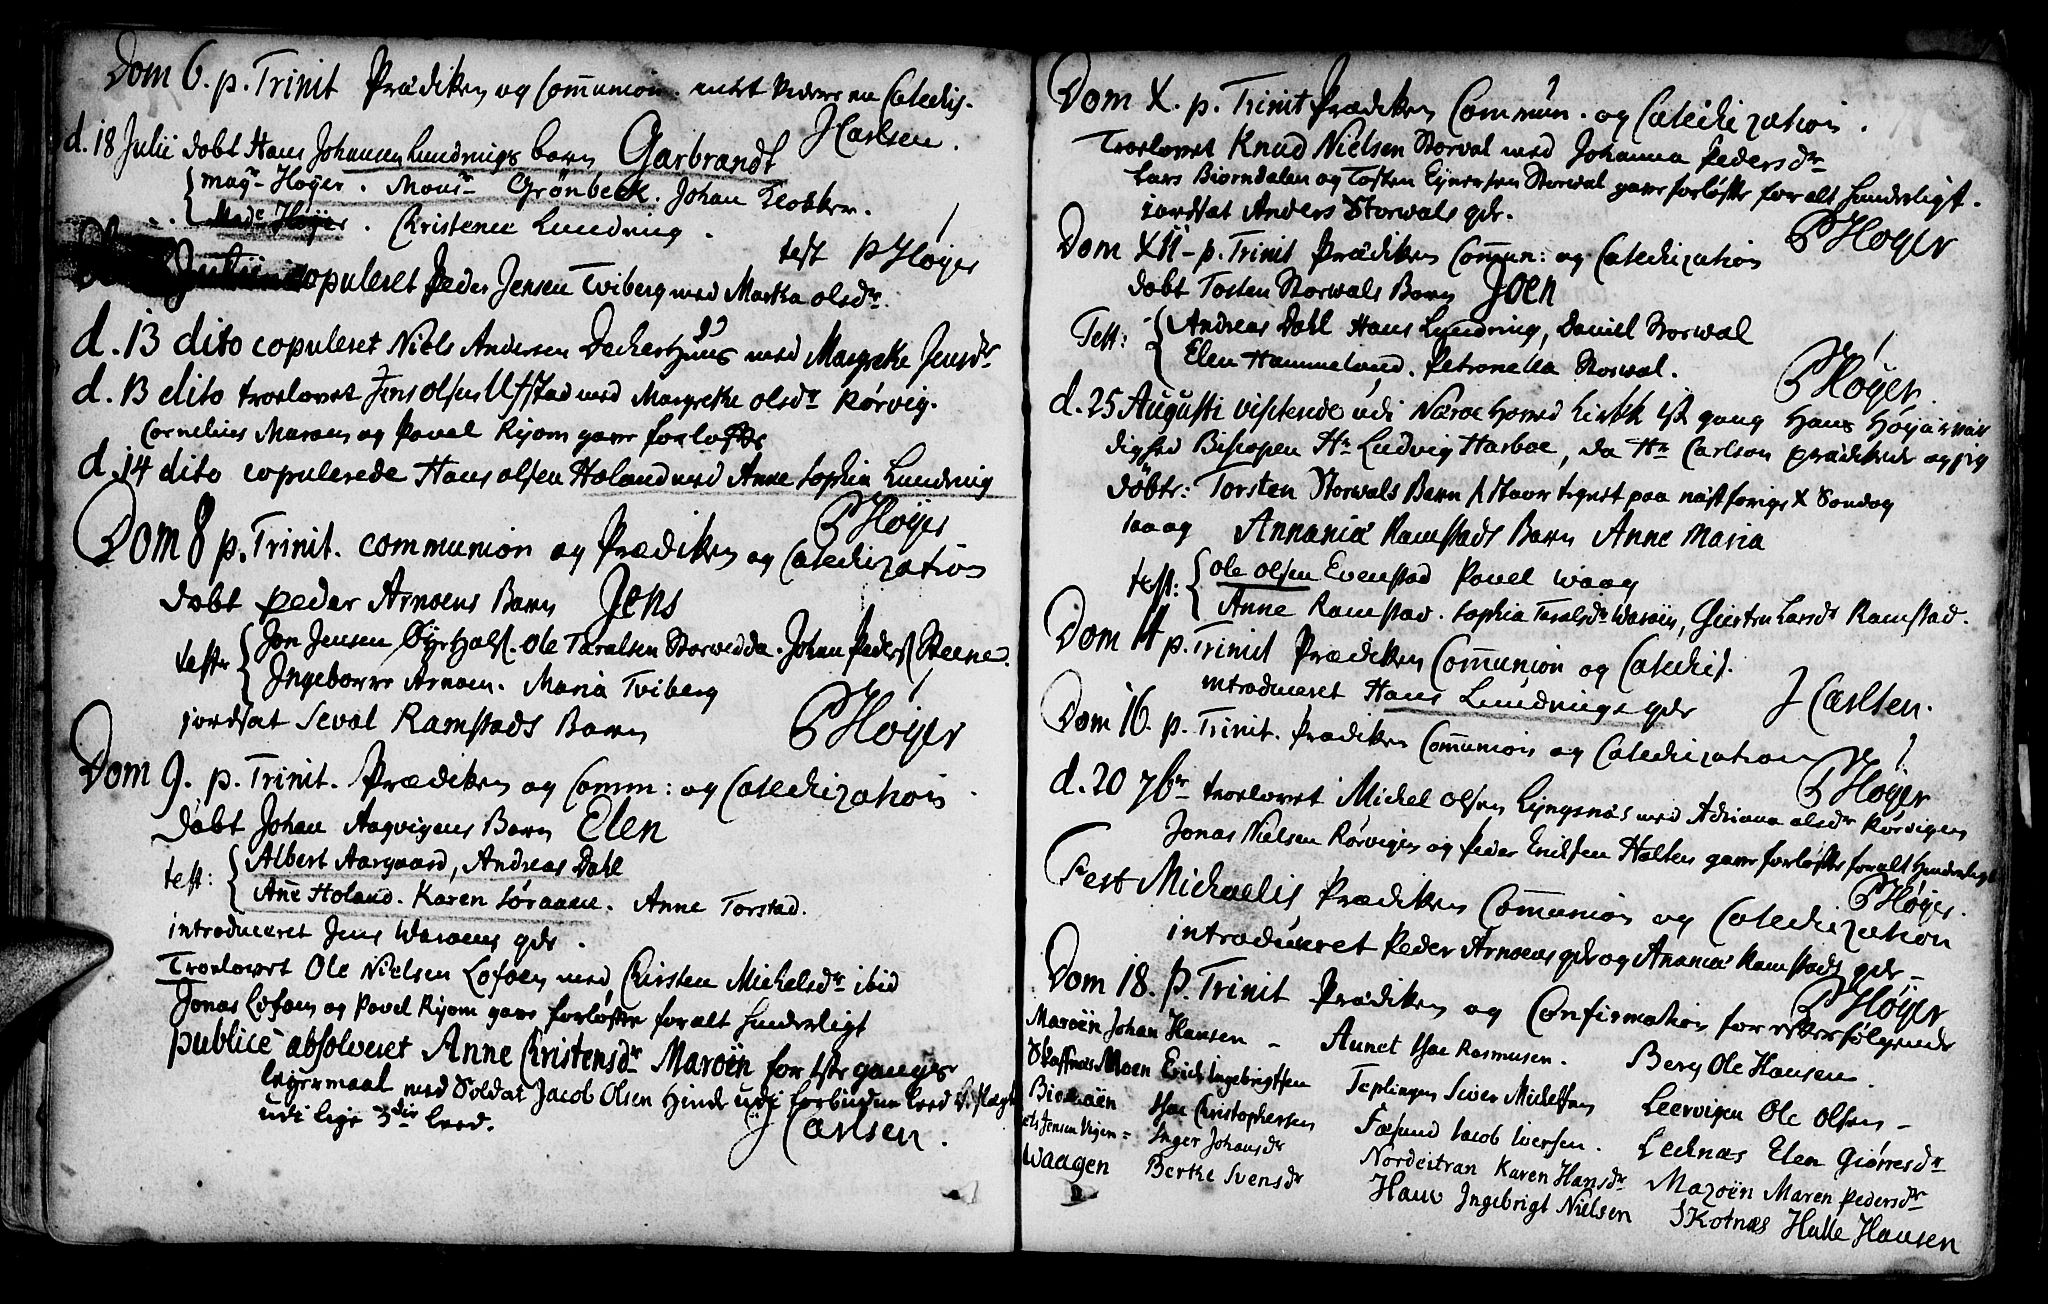 Dom 6. p. Trinit Prædiken og Communion. intet videre en Catechis.
J Carlsen.
d. 18 Julii døbt Hans Johansen Lundrings barn Garbrandt
magr Høyer. Monsr Grönbeck. Johan Klokker.
Made Høyer. Christense Lundring.
test P Høyer
copuleret Peder Jensen Tviberg med Martha olsdr.
d. 13 dito copuleret Niels Andersen Deckerhuus med Margrethe Jensdr
d. 13 dito troelovet Jens olsen Ufstad med Margrethe olsdr Rörvig.
Cornelius Maroen og Povel Ryom gave forløfte
d. 14 dito copulerede Hans olsen Holand med Anne Sophia Lundring
P Høyer
Dom 8 p. Trinit. communion og Prædiken og Catechization
døbt Peder Arnoens Barn Jens
teste Jon Jensen Øyrhals. Ole Taralsen Storvedde. Johan Peders Steene.
Ingeborre Arnoen. Maria Tviberg
jordsat Seval Ramstads Barn
P Høyer
Dom 9. p. Trinit. Prædiken og Comm: og Catechization
døbt Johan Aagvigens Barn Elen
test: Albert Aargaard, Andreas Dahl
Ane Holand. Karen Söraaen. Anne Torstad.
introduceret Jens Waroens qde.
Troelovet Ole Nielsen Lofoen med Chirsten Michelsdr ibid
Jonas Lofoen og Povel Ryom gave forløfte for alt hinderligt
publice absolveret Anne Christensdr Maroën for 1ste ganges
legermaal med Soldat Jacob Olsen Hinde udi forbuden leed b. slægt
udi lige 3die leed.
J Carlsen.
Dom X. p. Trinit Prædiken Commun. og Catechization.
Troelovet Knud Nielsen Storval med Johanna Pedersdr
Lars Biørndalen og Tosten Eynersen Storwal gave forløfte for alt hinderligt.
jordsat Anders Storwals qde.
P Høyer
Dom XII p. Trinit Prædiken Commun: og Catechization
døbt Tosten Storwals Barn Joen
Test: Andreas Dahl Hans Lundring, Daniel Storwal
Elen Hammeland. Petronella Storwal.
P Høyer.
d. 25 Augusti visiterede udi Næroe Hoved Kirke 1st gang Hans Høyærvær
dighed Biskopen Hr Ludvig Harboe, da Hr Carlson prædikede og jeg
døbte: Torsten Storwals Barn s. Havr tegnet paa næst forrige X Søndag
saa og Annaniæ Ramstads Barn Anne Maria
test: Ole Olsen Evenstad Povel Waag
Anne Ramstad. Sophia Taralsdr Waroen, Giertru Larsdr Ramstad.
Dom 14 p. Trinit Prædiken Communion og Catechis.
introduceret Hans Lundrings qde
J Carlsen.
Dom 16. p. Trinit. Prædiken Communion og Catechization
P Høyer
d. 20 7br troelovet Michel Olsen Lyngsnæs med Adriana olsdr Rørvigen
Jonas Nielsen Rörvigen og Peder Erichsen Holten gave forløfte for alt hinderligt
P Høyer.
Fest Michaelis Prædiken Communion og Catechization
introduceret Peder Arnoens qde og Ananiæ Ramstads qde
P Høyer
Dom 18. p. Trinit Prædiken og Confirmation for efterfølgende
Maroën Johan Hansen – Aunet Isac Rasmusen. Berg Ole Hansen.
Skaffnæs Moen Erich Ingebrigtsen Teplingen Siver Michelsen Leervigen Ole Olsen –
Isac Christophersen Fæsund Jacob Iversen. Lechnæs Elen Giørresdr
Inger Johansdr Nordeitran Karen Hansdr Maroën Maren Pedersdr
Waagen Berthe Svensdr Haw Ingebrigt Nielsen Skotnæs Halle Hansen